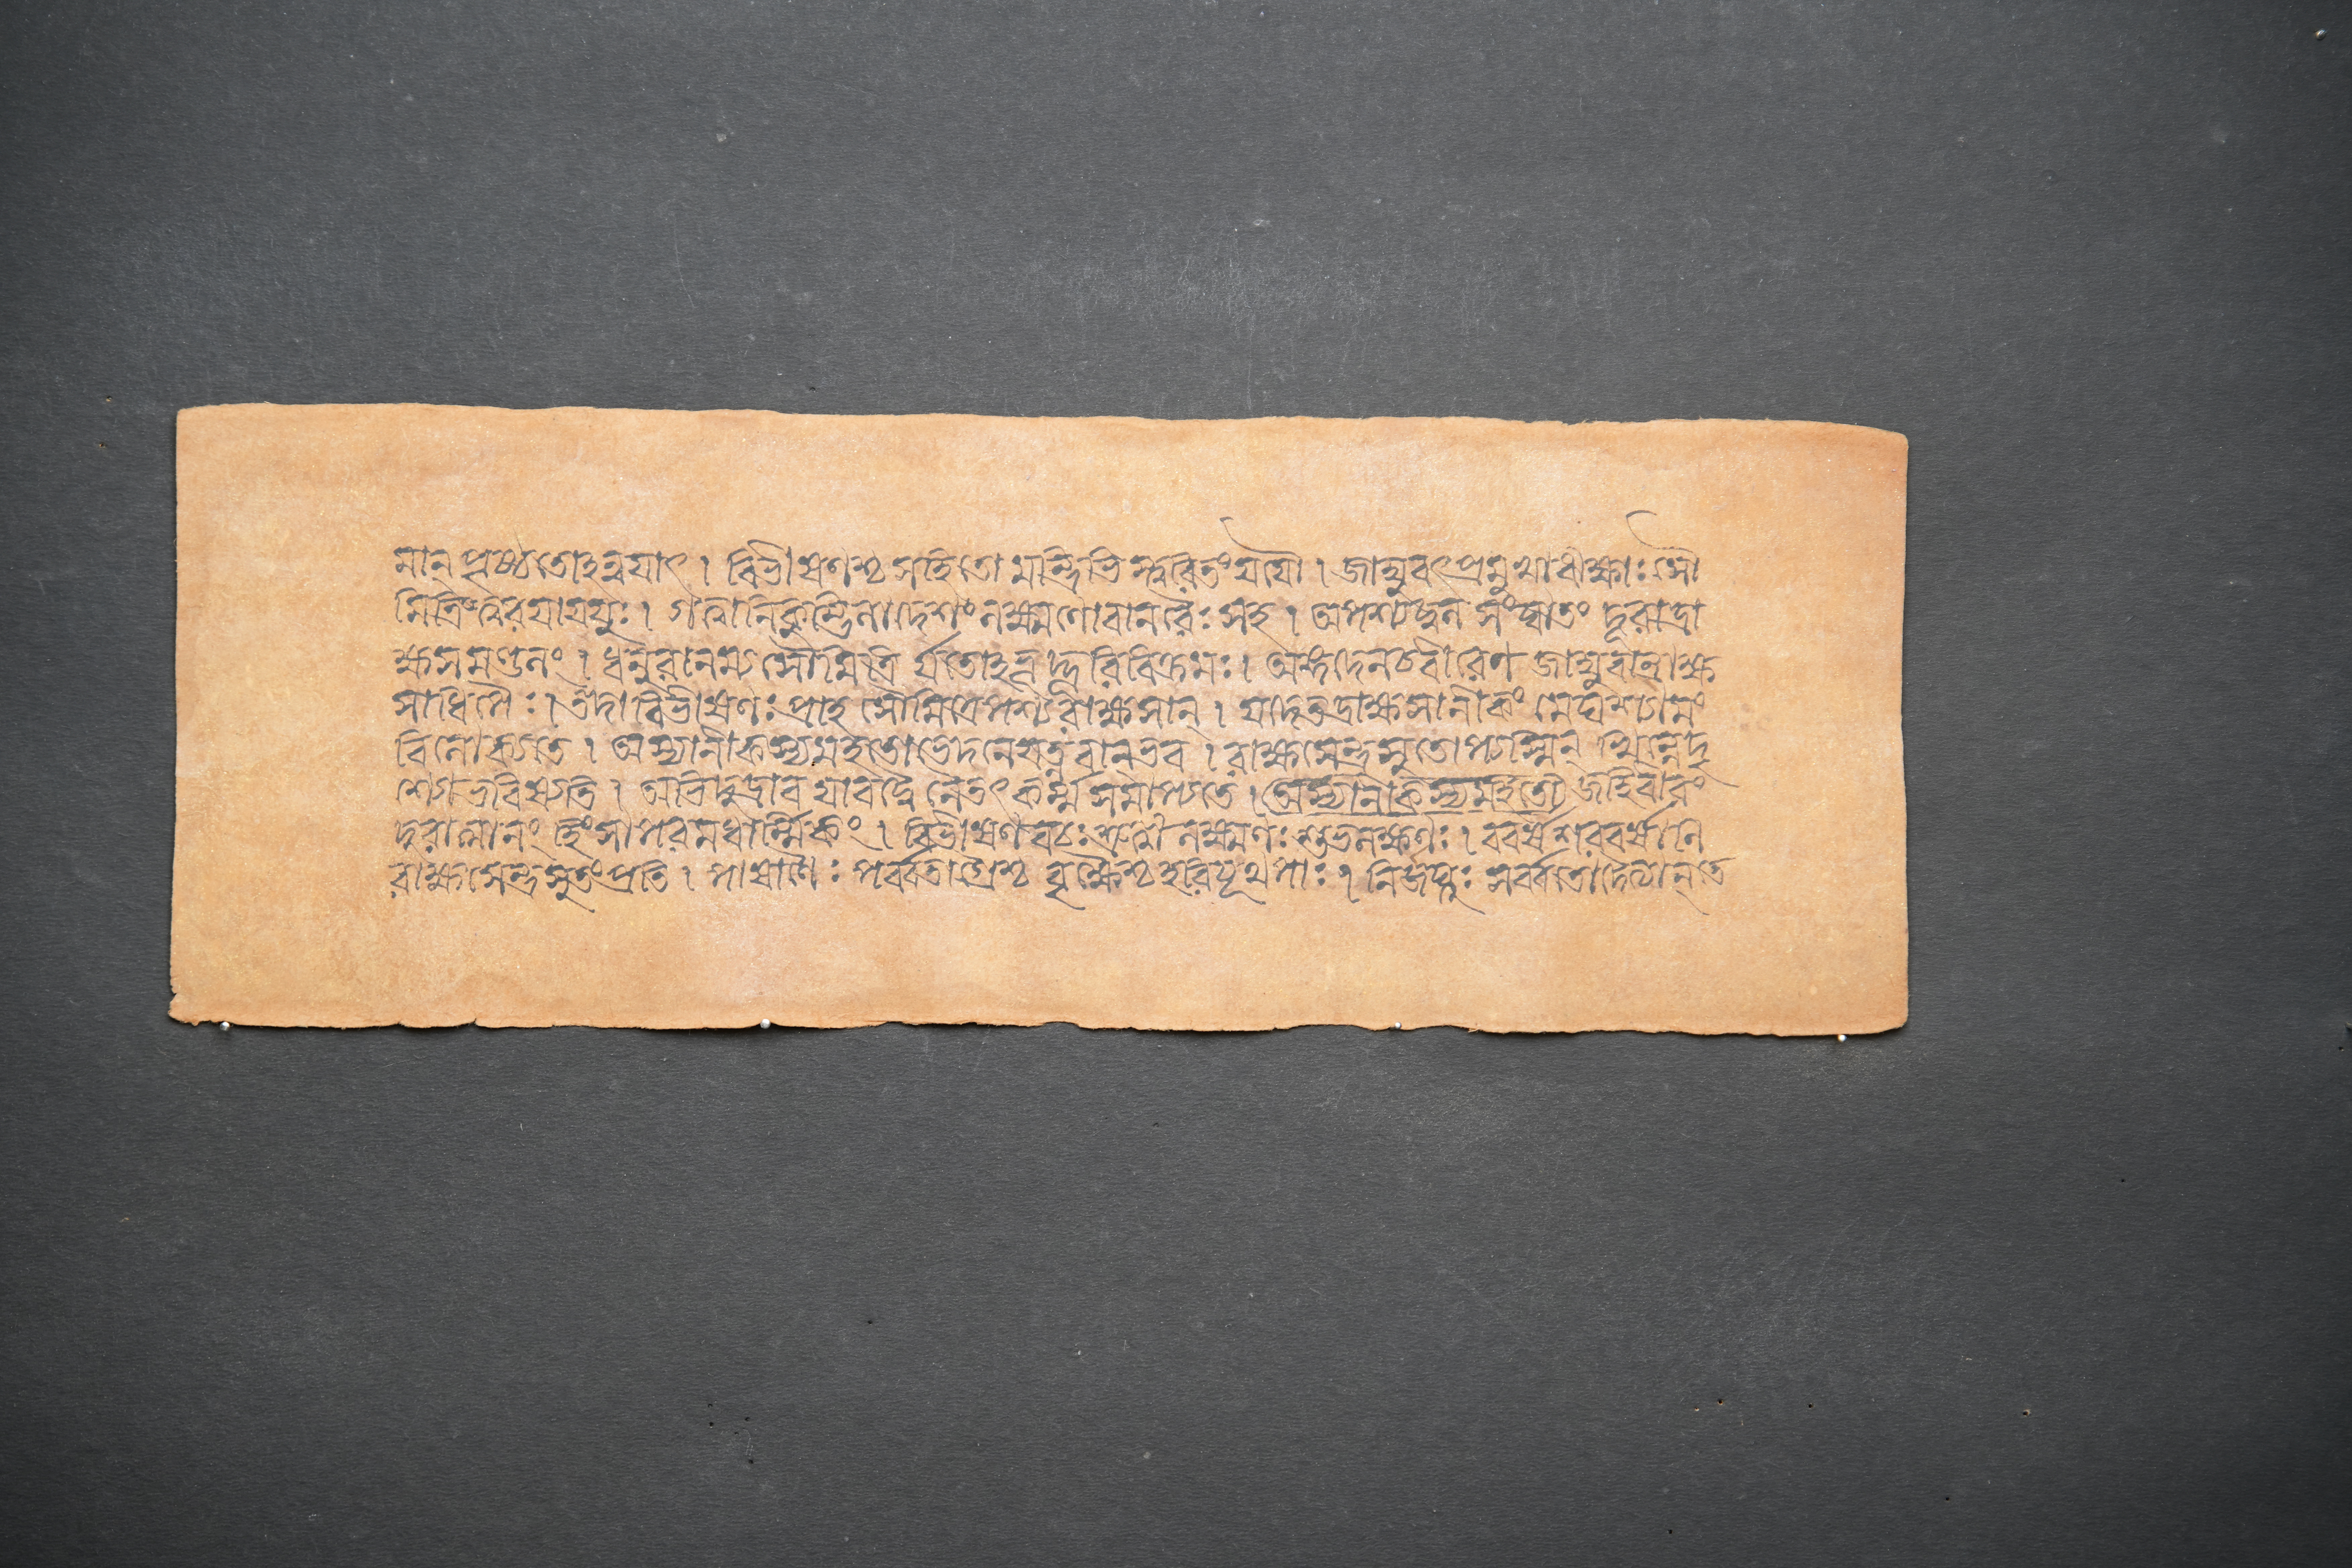 মান্ পৃষ্ঠতোঽন্বয়াৎ । বিভীষণশ্চ সহিতো মন্ত্রিভিস্ত্বরিতং যযৌ । জাম্বুবৎপ্রমুখা ঋক্ষাঃ সৌ
মিত্রিং ত্বরয়ান্বয়ুঃ । গত্বা নিকুম্ভিলাদেশং লক্ষ্মণো বানরৈঃ সহ । অপশ্যদ্বল সংঘাতং দূরাদ্রা
ক্ষসমণ্ডলং । ধনুরালম্ব্য সৌমিত্রি র্যতোঽভূদ্ভূরিবিক্রমঃ । অঙ্গদেন চ বীরেণ জাম্বুবান্রাক্ষ
সাধিপৈঃ । তদা বিভীষণঃ প্রাহ সৌমিত্রিং পশ্য রাক্ষসান্ । যদেতদ্রাক্ষসানীকং মেঘশ্যামং
বিলোক্যতে । অস্যানীকস্য মহতো ভেদনে যত্নবান্ভব । রাক্ষসেন্দ্রসুতোপ্যস্মিন্ ভিন্নে দৃ
শ্যো ভবিষ্যতি । অভিদ্রুদ্রাব যাবদ্বৈ নৈতৎ কর্ম্ম সমাপ্যতে । অস্যানীকস্য মহতো জহি বীরং
দুরাত্মানং হিংসাপরমধার্ম্মিকং । বিভীষণবচঃ শ্রুত্বা লক্ষ্মণঃ শুভলক্ষণঃ । ববর্ষ শরবর্ষাণি
রাক্ষসেন্দ্রসুতং প্রতি । পাষাণৈঃ পর্ব্বতাগ্রৈশ্চ বৃক্ষৈশ্চ হরিযূথপাঃ । নির্জঘ্নুঃ সর্ব্বতো দৈত্যান্ তে